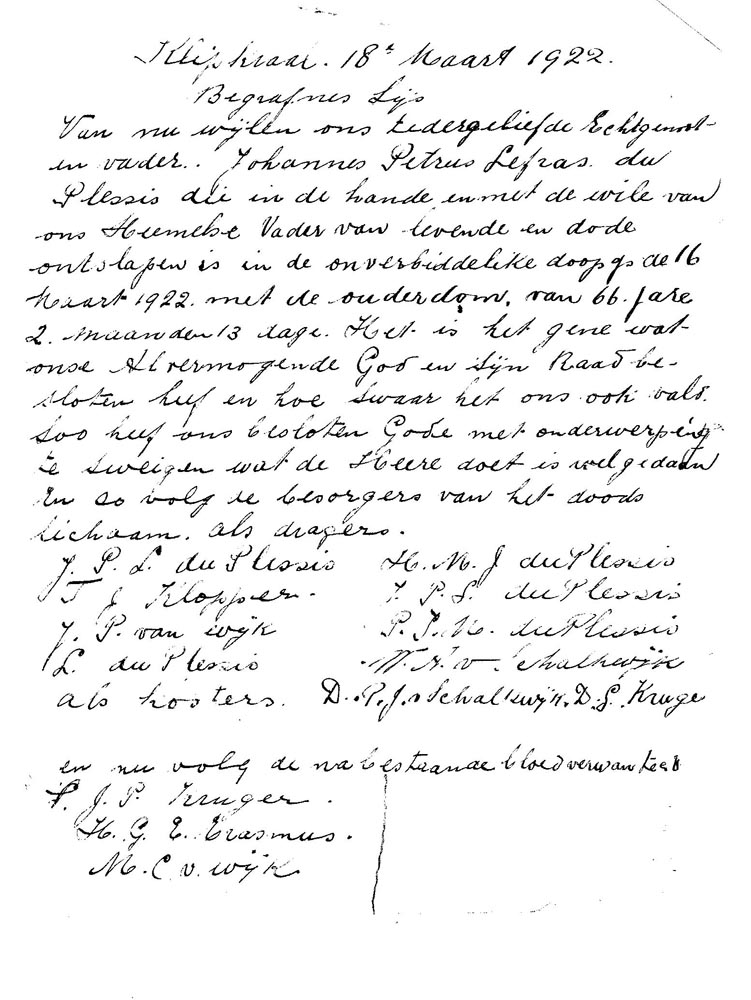 Klipkraal. 18e Maart 1922.
Begrafnes Lijs
Van nu wijlen ons tedergeliefde Echtgenoot
en vader. Johannes Petrus Lefras du
Plessis die in de hande en met de wile van
ons Heemelse Vader van levende en dode
ontslapen is in de onverbiddelike doops de 16
Maart 1922. met de ouderdom, van 66. Jare
2. maanden 13 dage. Het is het gene wat
onse Alvermogende God en Sijn Raad be-
sloten heef en hoe swaar het ons ook vald.
Soo heef ons besloten Gode met onderwerping
te sweigen wat de Heere doet is wel gedaan
En so volg de besorgers van het doods
lichaam. als dragers.
J. P. L. du Plessis H. M. J du Plessis
T J Klopper. J. P. L. du Plessis
J. P. van wijk P. J. M. du Plessis
L. du Plessis W. A. v Schalkwijk
als kosters. D. P. J. v Schalkwijk. D. S. Kruge
en nu volg de nabestaande bloedverwantees
S. J. P. Kruger.
H. G. E. Erasmus.
M. C v. wijk